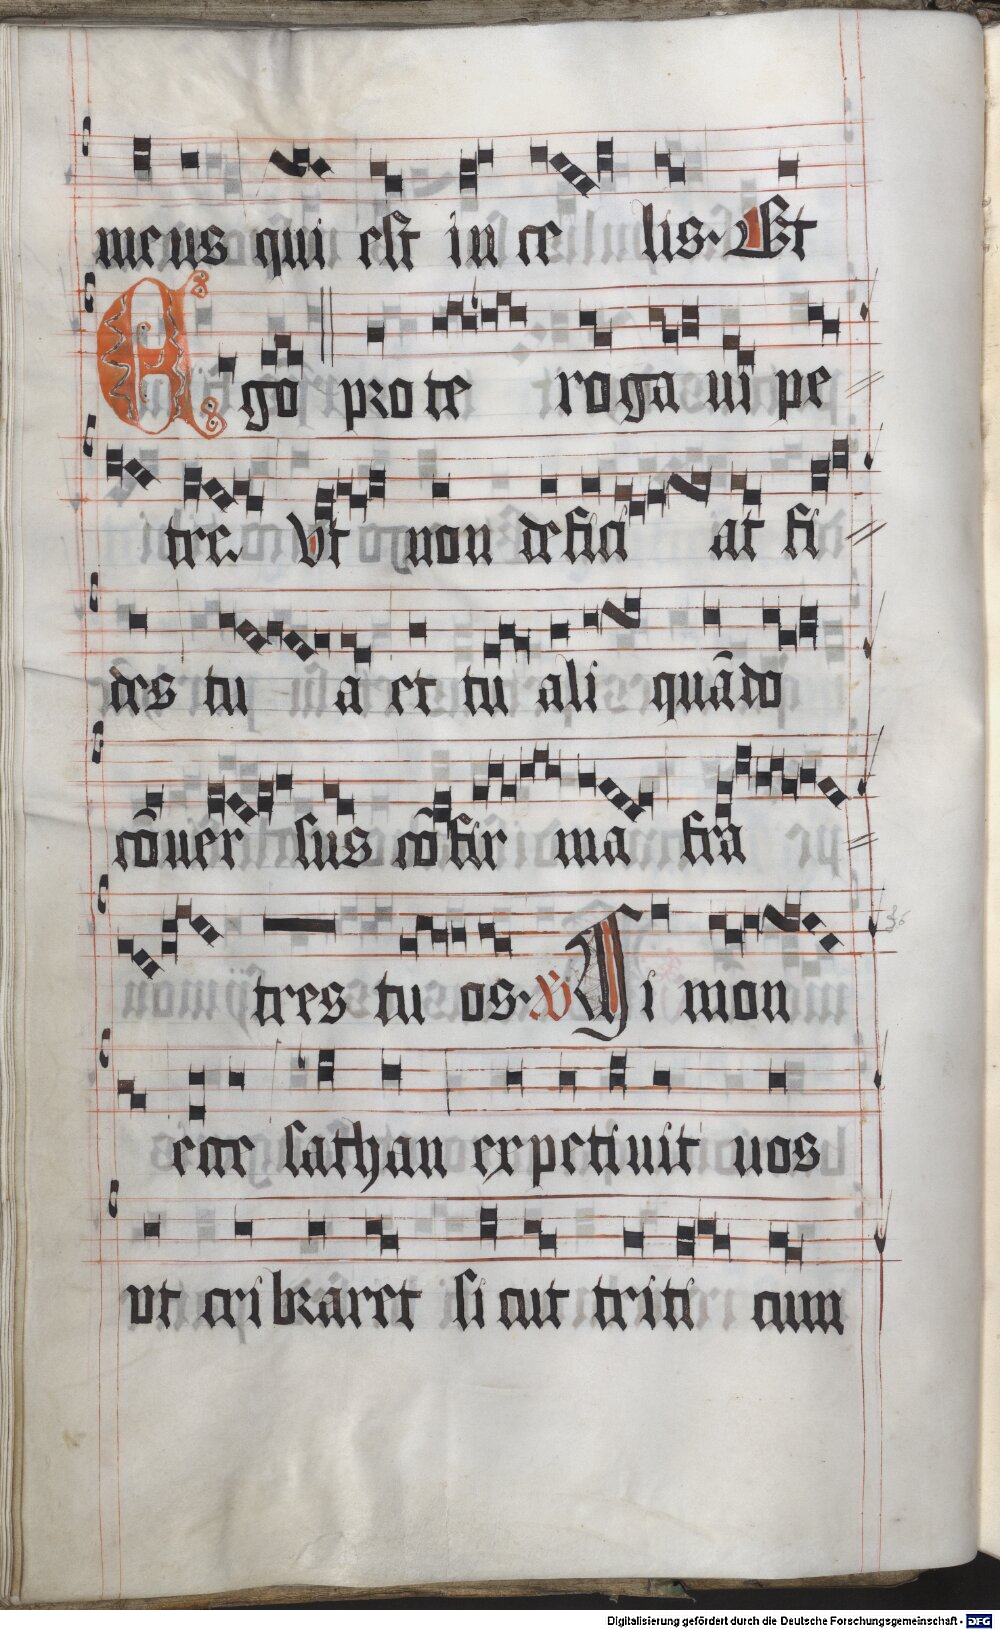 meus qui est in ce lis. Et
Ego pro te roga ui pe
tre. Vt non defici at fi
des tu a et tu ali quãdo
cõuer sus cõfir ma fra
tres tu os. V Si mon
ecce sathan expetiuit uos
vt cribraret sicut triti cum
Digitalisierung gefördert durch die Deutsche Forschungsgemeinschaft - DFG